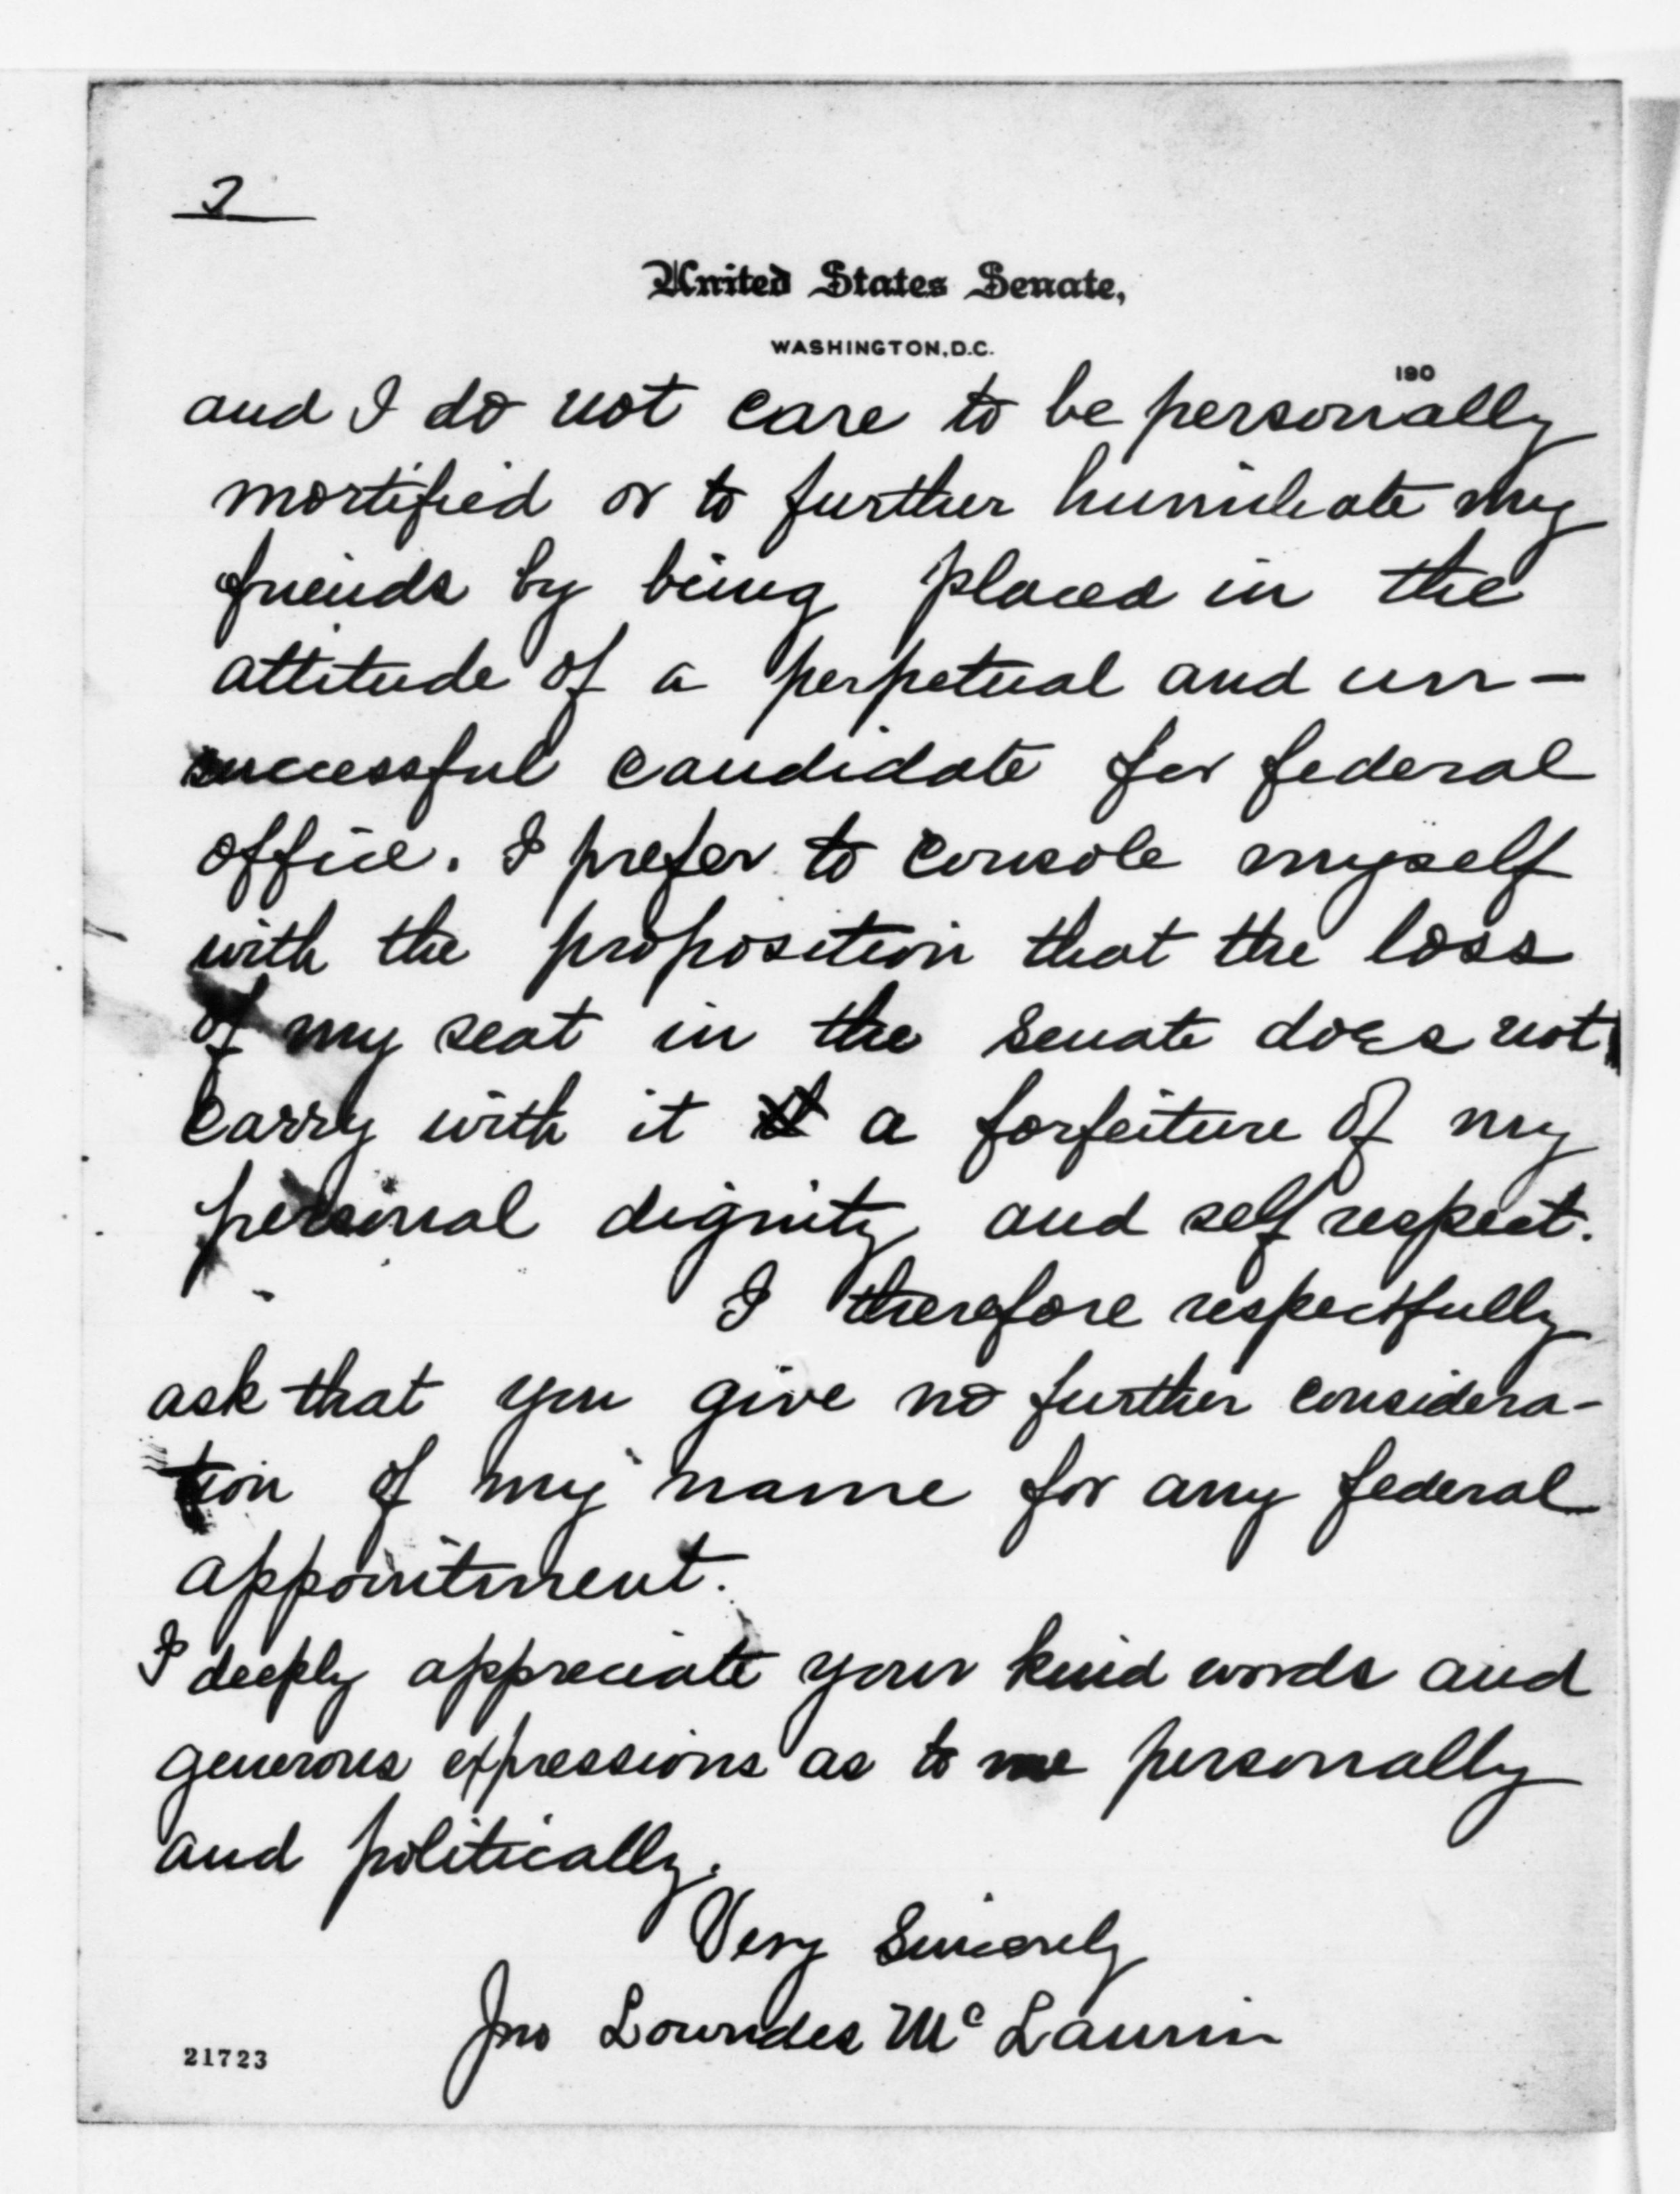 2
United States Senate,
WASHINGTON, D.C.
190
and I do not care to be personally
mortified or to further humiliate my
friends by being placed in the
attitude of a perpetual and un-
successful candidate for federal
office. I prefer to console myself
with the proposition that the loss
of my seat in the Senate does not
carry with it a forfeiture of my
personal dignity and self respect.
I therefore respectfully
ask that you give no further considera-
tion of my name for any federal
appointment.
I deeply appreciate your kind words and
generous expressions as to me personally
and politically.
Very Sincerely
Jno Lowndes McLaurin
21723